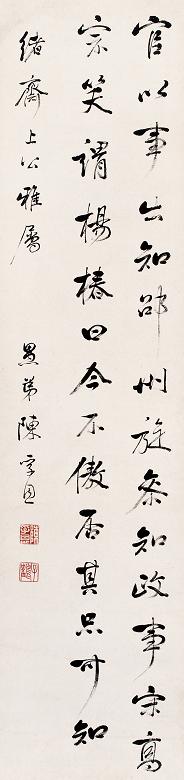 官以事出知邵州旋參知政事宋高
宗笑謂楊椿曰今不傲否其品可知
緒齋上公雅屬
愚弟陳孚恩